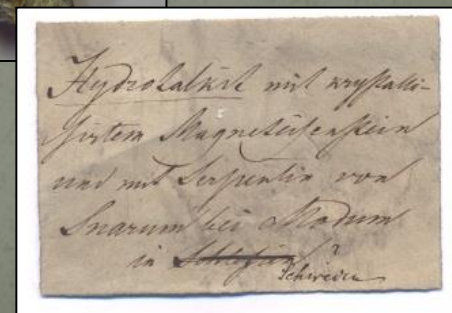 Hydrotalkit mit krystalli-
sirtem Magneteisenstein
und mit Serpentin von
Snarum bei Modum
in Schlesien?
Schweden